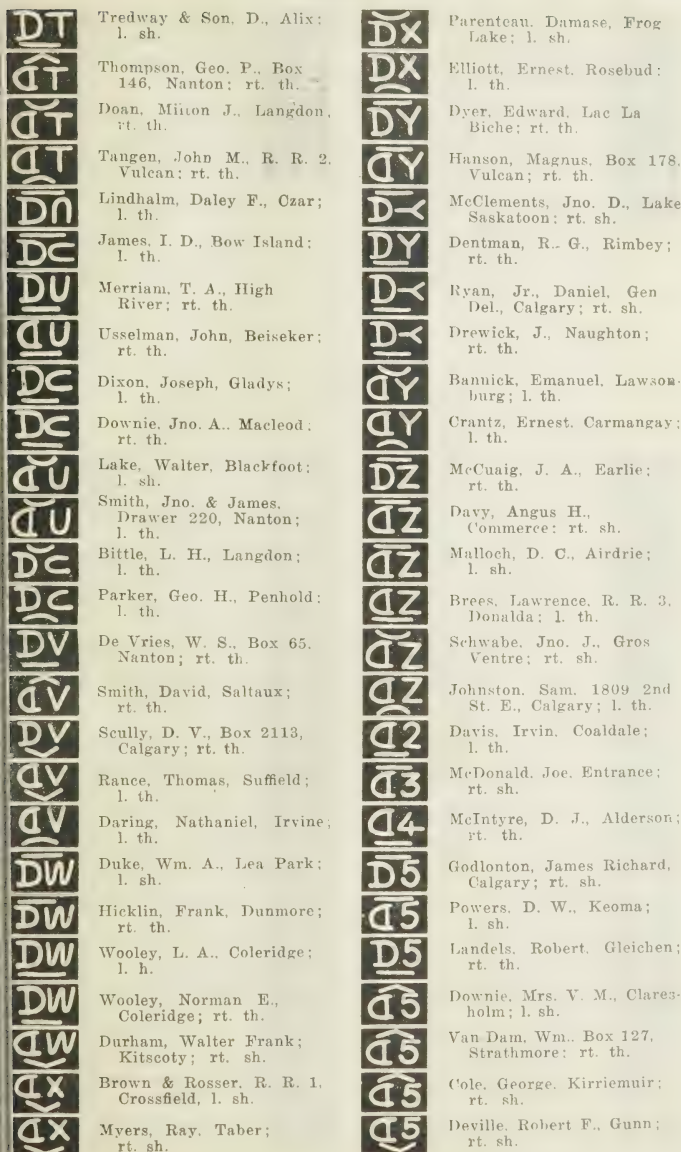 DT
Tredway & Son, D., Alix;
l. sh.
Thompson, Geo. P., Box
146, Nanton; rt. th.
Doan, Milton J., Langdon,
rt. th.
Tangen, John M., R. R. 2,
Vulcan; rt. th.
Lindhalm, Daley F., Czar;
l. th.
James, I. D., Bow Island;
l. th.
Merriam, T. A., High
River; rt. th.
Usselman, John, Beiseker;
rt. th.
Dixon, Joseph, Gladys;
l. th.
Downie, Jno. A., Macleod;
rt. th.
Lake, Walter, Blackfoot;
l. sh.
Smith, Jno. & James,
Drawer 220, Nanton;
l. th.
Bittle, L. H., Langdon;
l. th.
Parker, Geo. H., Penhold;
l. th.
DV
De Vries, W. S., Box 65,
Nanton; rt. th.
Smith, David, Saltaux;
rt. th.
DV
Scully, D. V., Box 2113,
Calgary; rt. th.
Rance, Thomas, Suffield;
l. th.
Daring, Nathaniel, Irvine;
l. th.
DW
Duke, Wm. A., Lea Park;
l. sh.
DW
Hicklin, Frank, Dunmore;
rt. th.
DW
Wooley, L. A., Coleridge;
l. h.
DW
Wooley, Norman E.,
Coleridge; rt. th.
Durham, Walter Frank;
Kitscoty; rt. sh.
Brown & Rosser, R. R. 1,
Crossfield, l. sh.
Myers, Ray, Taber;
rt. sh.
DX
Parenteau, Damase, Frog
Lake; l. sh.
DX
Elliott, Ernest, Rosebud;
l. th.
DY
Dyer, Edward, Lac La
Biche; rt. th.
Hanson, Magnus, Box 178,
Vulcan; rt. th.
McClements, Jno. D., Lake
Saskatoon; rt. sh.
DY
Dentman, R. G., Rimbey;
rt. th.
Ryan, Jr., Daniel, Gen
Del., Calgary; rt. sh.
Drewick, J., Naughton;
rt. th.
Bannick, Emanuel, Lawson-
burg; l. th.
Crantz, Ernest, Carmangay;
l. th.
DZ
McCuaig, J. A., Earlie;
rt. th.
Davy, Angus H.,
Commerce; rt. sh.
Malloch, D. C., Airdrie;
l. sh.
Brees, Lawrence, R. R. 3,
Donalda; l. th.
Schwabe, Jno. J., Gros
Ventre; rt. sh.
Johnston, Sam, 1809 2nd
St. E., Calgary; l. th.
Davis, Irvin, Coaldale;
l. th.
McDonald, Joe, Entrance;
rt. sh.
McIntyre, D. J., Alderson;
rt. th.
D5
Godlonton, James Richard,
Calgary; rt. sh.
Powers, D. W., Keoma;
l. sh.
D5
Landels, Robert, Gleichen;
rt. th.
Downie, Mrs. V. M., Clares-
holm; l. sh.
Van Dam, Wm., Box 127,
Strathmore; rt. th.
Cole, George, Kirriemuir;
rt. sh.
Deville, Robert F., Gunn;
rt. sh.